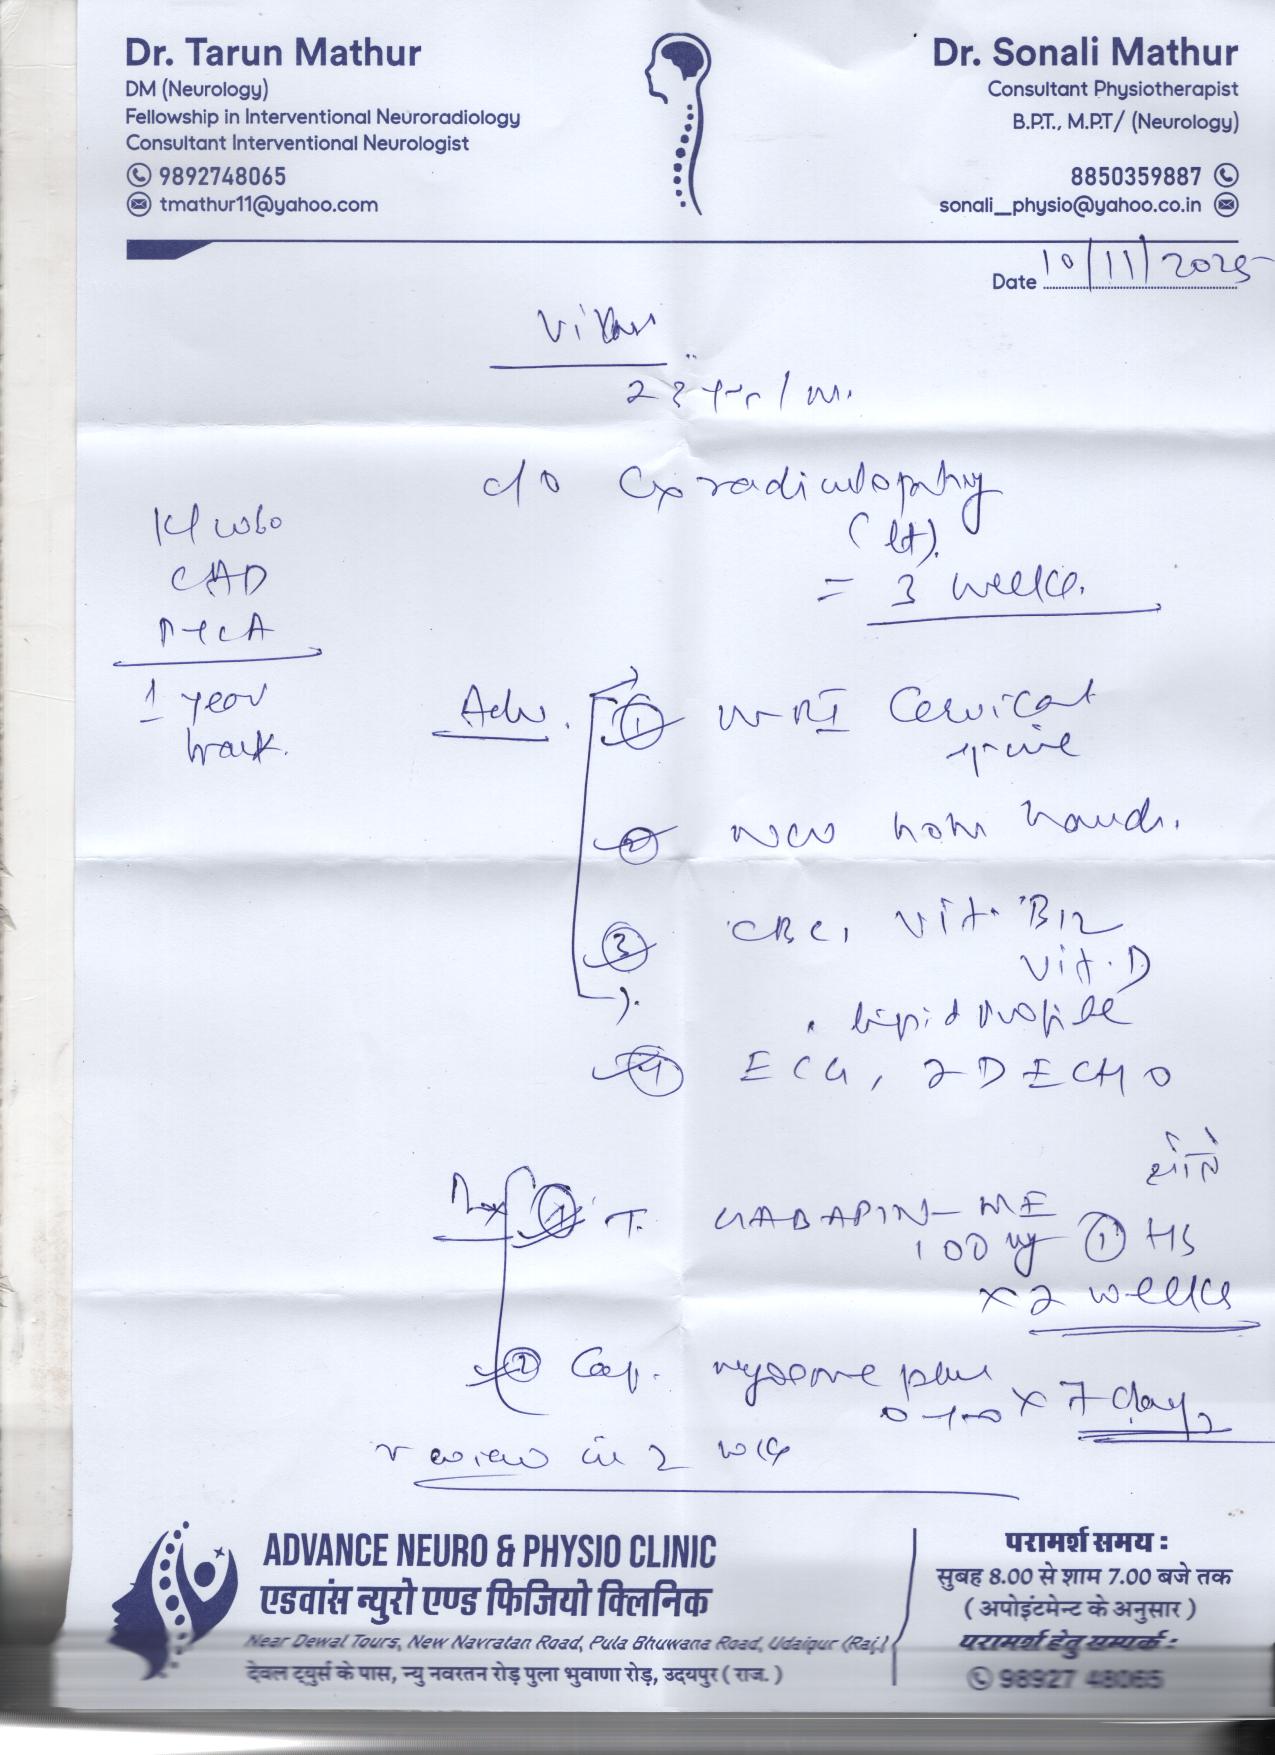 Dr. Tarun Mathur
DM (Neurology)
Fellowship in Interventional Neuroradiology
Consultant Interventional Neurologist
9892748065
tmathur11@yahoo.com
Dr. Sonali Mathur
Consultant Physiotherapist
B.P.T., M.P.T/ (Neurology)
8850359887
sonali_physio@yahoo.co.in
Date 10/11/2025
/ M.
c/o Cx radiculopathy
(Lt).
= 3 weeks.
K/c/o
CAD
1 year
back.
Adv.
① MRI Cervical
spine
② NCV both hands.
③ CBC, Vit. B12
Vit. D
lipid profile
④ ECG, 2D ECHO
Rx
① T. GABAPIN-ME
100 mg ① HS
x 2 weeks
② Cap. plus
x 7 days
review in 2 wk
ADVANCE NEURO & PHYSIO CLINIC
एडवांस न्युरो एण्ड फिजियो क्लिनिक
Near Dewal Tours, New Navratan Road, Pula Bhuwana Road, Udaipur (Raj.)
देवल ट्युर्स के पास, न्यु नवरतन रोड़ पुला भुवाणा रोड़, उदयपुर ( राज. )
परामर्श समय :
सुबह 8.00 से शाम 7.00 बजे तक
( अपोइंटमेन्ट के अनुसार )
परामर्श हेतु सम्पर्क :
98927 48065